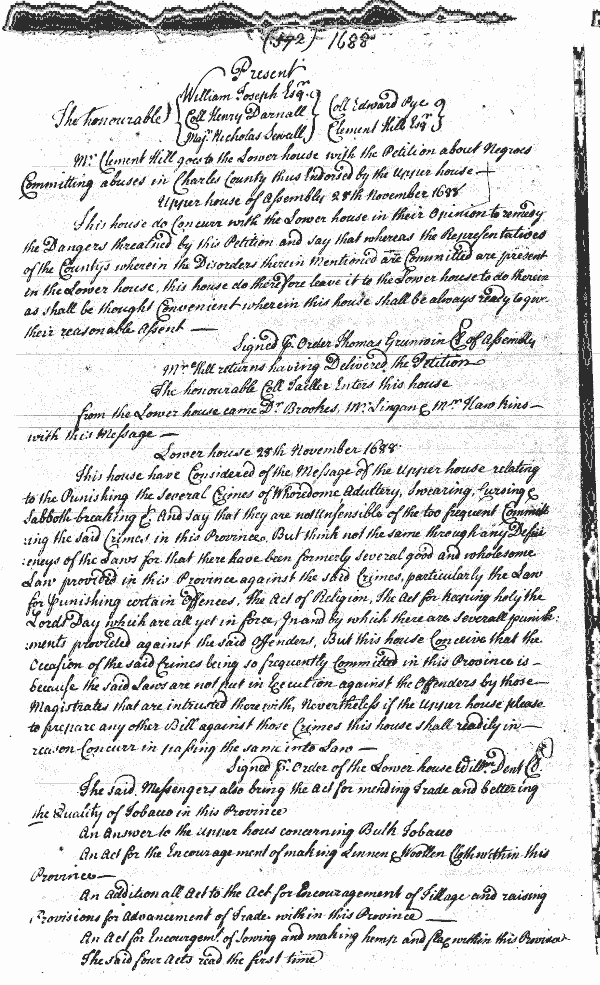 (542) 1688
Present
The honourable
William Joseph Esqr.
Coll Henry Darnall
Majr. Nicholas Sewall
Coll Edward Pye
Clement Hill Esqr
Mr. Clement Hill goes to the Lower house with the Petition about Negroes
Committing abuses in Charles County thus Endorsed by the Upper house —
Upper house of Assembly 28th November 1688
This house do Concurr with the Lower house in their Opinion to remedy
the Dangers threatned by this Petition and say that whereas the Representatives
of the Countys wherein the Disorders therein mentioned are Committed are present
in the Lower house, this house do therefore leave it to the Lower house to do therein
as shall be thought Convenient wherein this house shall be always ready to give
their reasonable Assent —
Signed p. Order Thomas Grunwin Cl of Assembly
Mr. Hill returns having Delivered the Petition
The honourable Coll Enters this house
from the Lower house came Dr Brookes, Mr. Lingan & Mr. Hawkins —
with this Message —
Lower house 28th November 1688
This house have Considered of the Message of the Upper house relating
to the Punishing the Several Crimes of Whoredome Adultery, Swearing, Cursing &
Sabboth breaking & And say that they are not unsensible of the too frequent Committ
:ing the said Crimes in this Province, But think not the same through any Defici
:encys of the Laws for that there have been formerly several good and wholesome
Law provided in this Province against the said Crimes, particularly the Law
for Punishing certain Offences, the Act of Religion, The Act for keeping holy the
Lords Day which are all yet in force, In and by which there are severall punish:
:ments provided against the said Offenders, But this house Conceive that the
Occasion of the said Crimes being so frequently Committed in this Province is —
because the said Laws are not put in Execution against the Offenders by those —
Magistrates that are intrusted therewith, Nevertheless if the Upper house please
to prepare any other Bill against those Crimes this house shall readily in —
reason Concurr in passing the same into Law —
Signed p. Order of the Lower house Willm Dent Cl
The said Messengers also bring the Act for mending Trade and bettering
the Quality of Tobacco in this Province
An Answer to the upper hous concerning Bulk Tobacco
An Act for the Encouragement of making Linnen & Woollen Cloth within this
Province —
An Additionall Act to the Act for Encouragement of Tillage and raising
Provisions for Advancement of Trade within this Province —
An Act for Encourgemt. of Sowing and making hemp and flax within this Province
The said four Acts read the first time